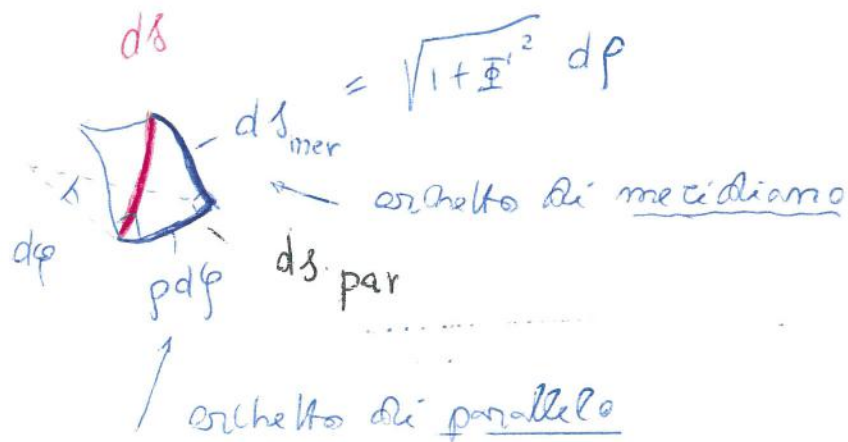 ds
= √(1 + Φ'²) dρ
ds mer
archetto di meridiano
dφ
ρdφ
ds par
archetto di parallelo